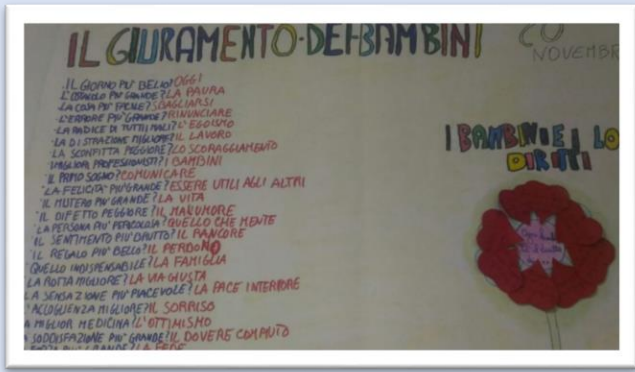 IL GIURAMENTO·DEI·BAMBINI
20
NOVEMBR
IL GIORNO PIU' BELLO? OGGI
L'OSTACOLO PIU' GRANDE? LA PAURA
LA COSA PIU' FACILE? SBAGLIARSI
L'ERRORE PIU' GRANDE? RINUNCIARE
LA RADICE DI TUTTI MALI? L'EGOISMO
LA DISTRAZIONE MIGLIORE? IL LAVORO
LA SCONFITTA PEGGIORE? LO SCORAGGIAMENTO
I MIGLIORI PROFESSIONISTI? I BAMBINI
IL PRIMO SOGNO? COMUNICARE
LA FELICITA' PIU' GRANDE? ESSERE UTILI AGLI ALTRI
IL MISTERO PIU' GRANDE? LA VITA
IL DIFETTO PEGGIORE? IL MALUMORE
LA PERSONA PIU' PERICOLOSA? QUELLO CHE MENTE
IL SENTIMENTO PIU' BRUTTO? IL RANCORE
IL REGALO PIU' BELLO? IL PERDONO
QUELLO INDISPENSABILE? LA FAMIGLIA
LA ROTTA MIGLIORE? LA VIA GIUSTA
A SENSAZIONE PIU' PIACEVOLE? LA PACE INTERIORE
ACCOGLIENZA MIGLIORE? IL SORRISO
A MIGLIOR MEDICINA? L'OTTIMISMO
SODDISFAZIONE PIU' GRANDE? IL DOVERE COMPIUTO
FORZA PIU' GRANDE? LA FEDE
I BAMBINI E I LO
DIRITTI